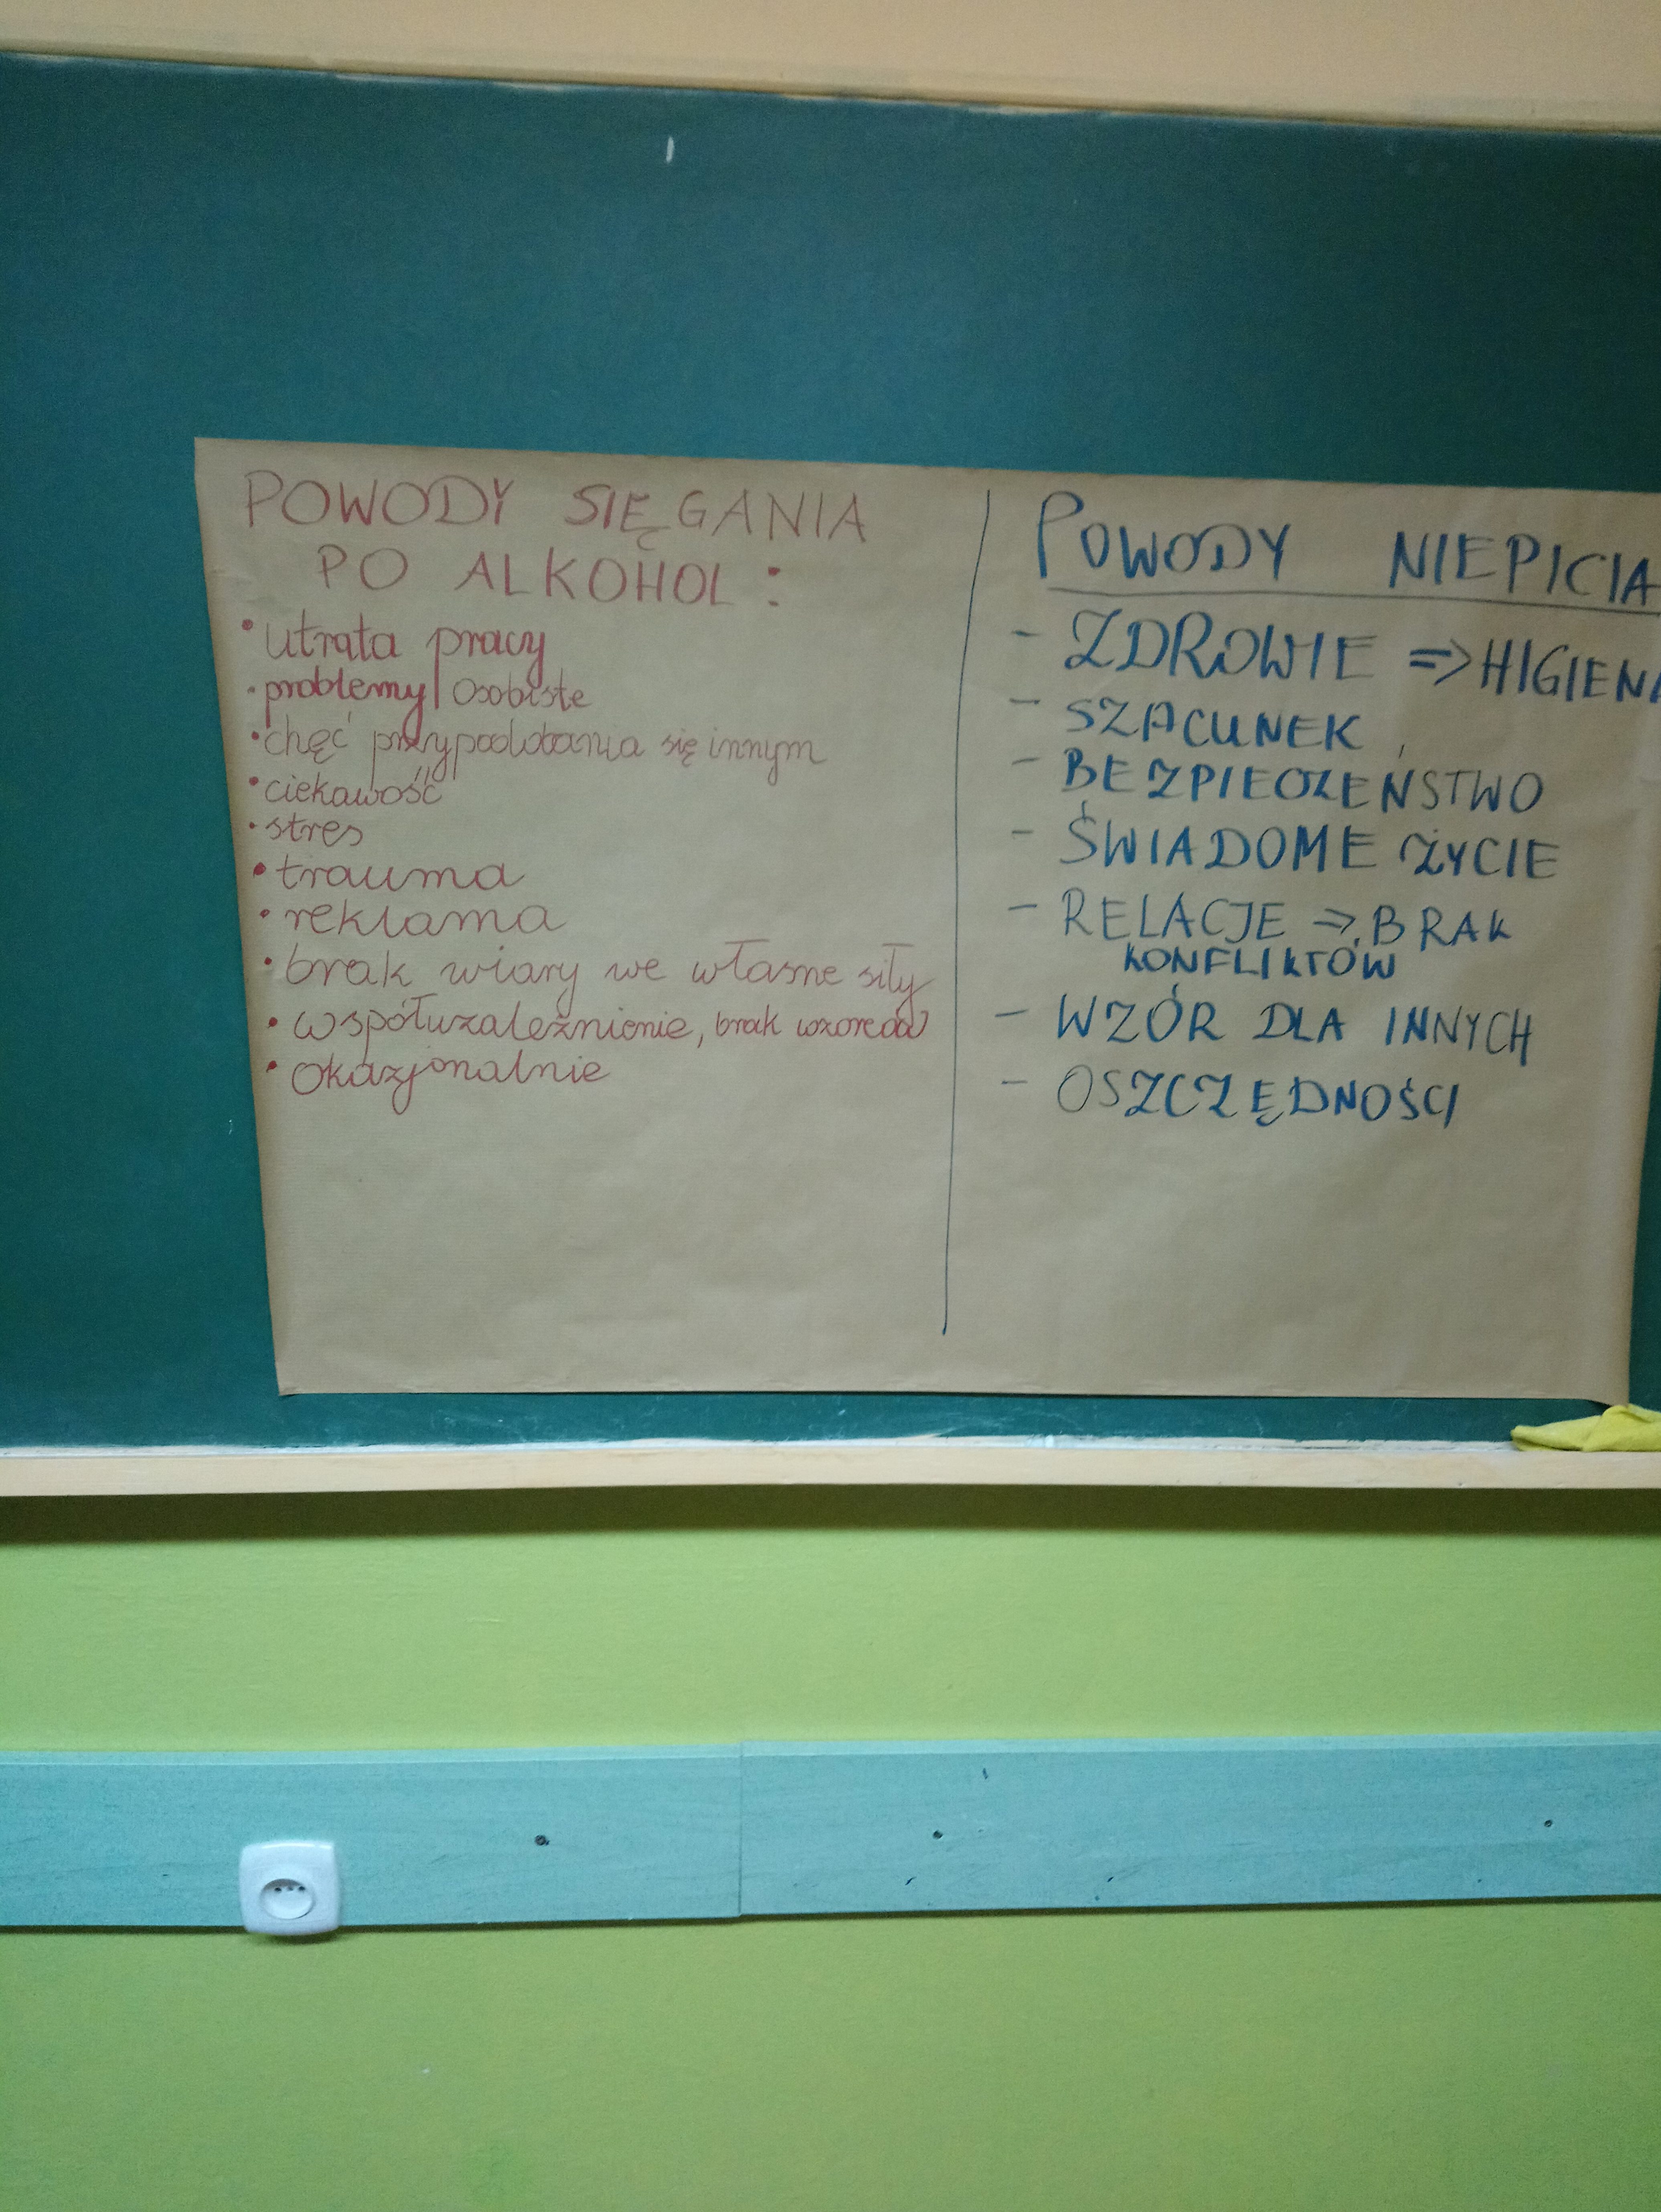 POWODY SIĘGANIA
PO ALKOHOL :
• utrata pracy
• problemy osobiste
• chęć przypodobania się innym
• ciekawość
• stres
• trauma
• reklama
• brak wiary we własne siły
• współuzależnienie, brak wzorców
• okazjonalnie
POWODY NIEPICIA
- ZDROWIE => HIGIENA
- SZACUNEK
- BEZPIECZEŃSTWO
- ŚWIADOME ŻYCIE
- RELACJE => BRAK
KONFLIKTÓW
- WZÓR DLA INNYCH
- OSZCZĘDNOŚCI